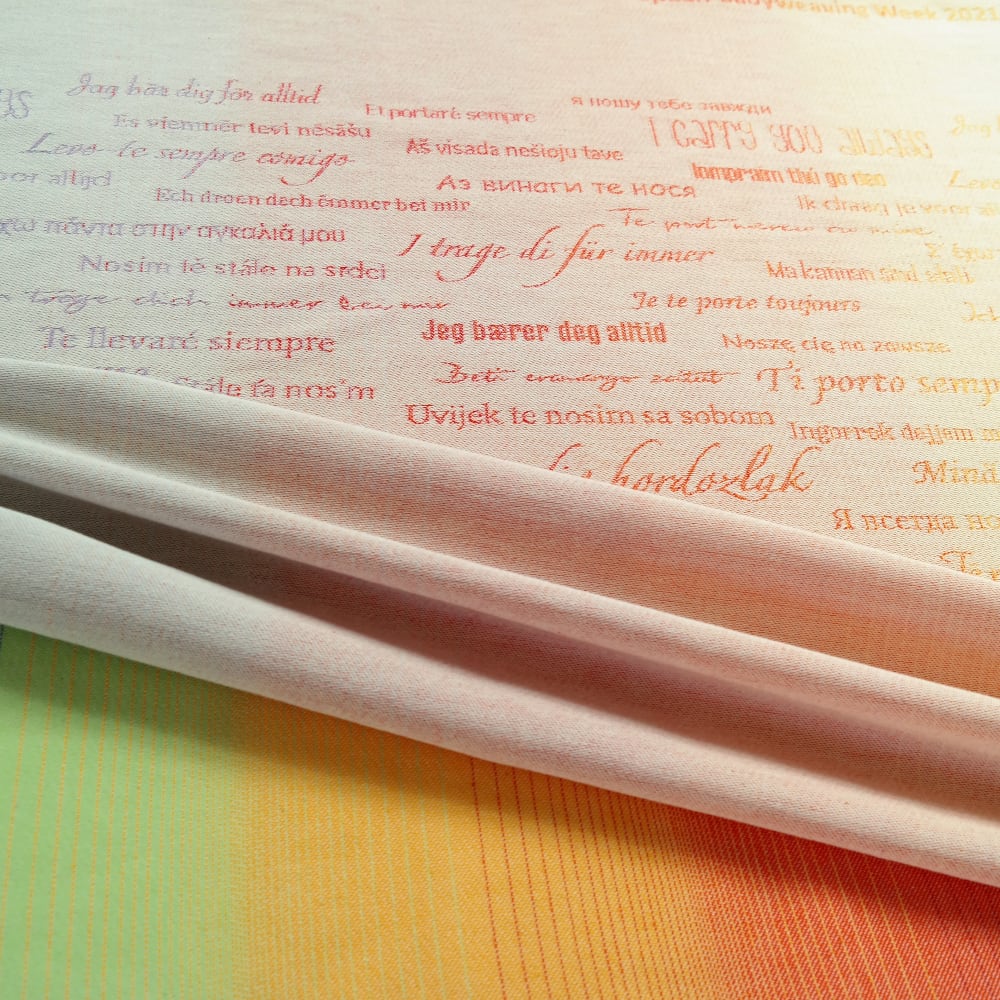 Week 2021
Jag bär dig för alltid
Et portaré sempre
я ношу тебе завжди
Es vienmēr tevi nēsāšu
I CARRY YOU ALWAYS
Jag
Levo-te sempre comigo
Aš visada nešioju tave
Iompraim thú go deo
voor altijd
Аз винаги те нося
Ech droen dech ëmmer bei mir
Ik draag je voor
Te port mereu cu mine
έχω πάντα στην αγκαλιά μου
I trage di für immer
Nosím tě stále na srdci
Ma kannan sind
trage dich immer bei mir
Je te porte toujours
Te llevaré siempre
Jeg bærer deg alltid
Noszę cię na zawsze
Stále ťa nosím
Beti eramango zaitut
Ti porto semp
Uvijek te nosim sa sobom
Inġorrok dejjem
hordozlak
Minä
Я всегда но
Te